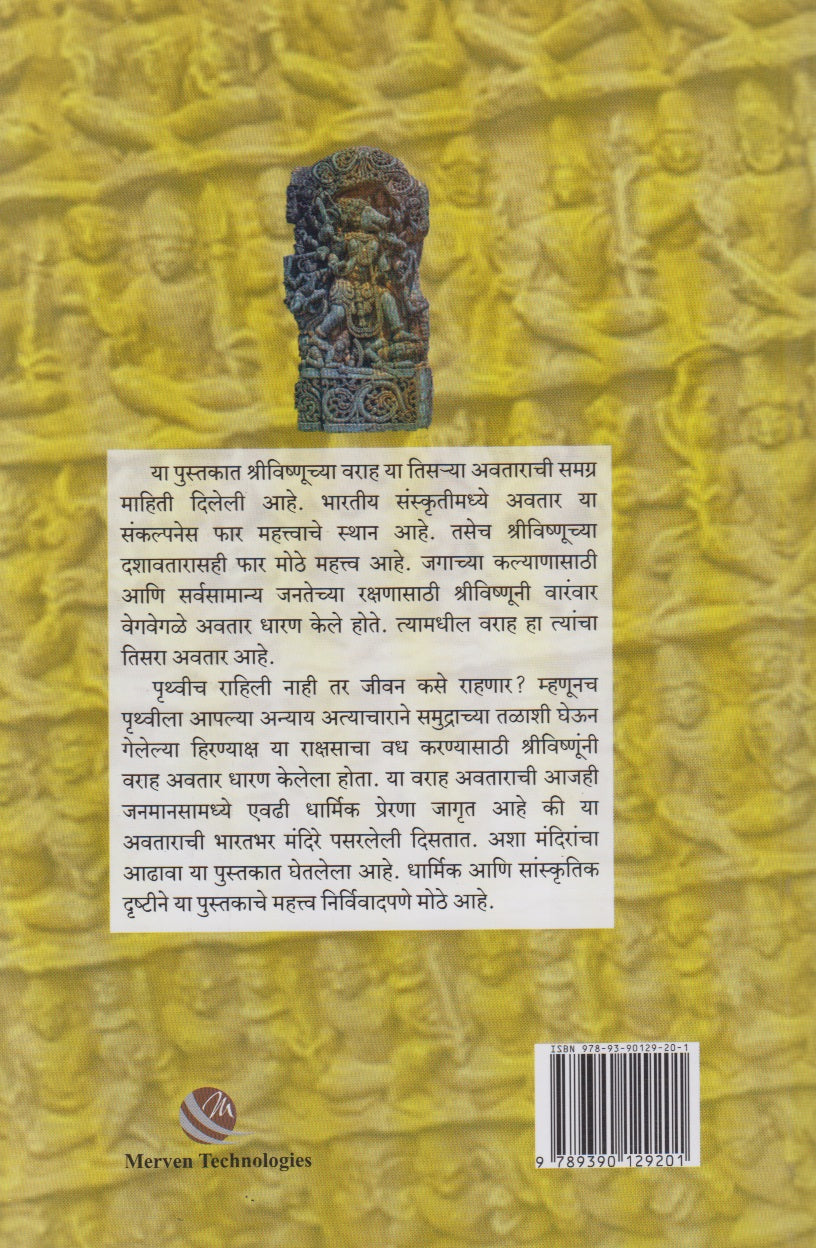 या पुस्तकात श्रीविष्णूच्या वराह या तिसऱ्या अवताराची समग्र
माहिती दिलेली आहे. भारतीय संस्कृतीमध्ये अवतार या
संकल्पनेस फार महत्त्वाचे स्थान आहे. तसेच श्रीविष्णूच्या
दशावतारासही फार मोठे महत्त्व आहे. जगाच्या कल्याणासाठी
आणि सर्वसामान्य जनतेच्या रक्षणासाठी श्रीविष्णूनी वारंवार
वेगवेगळे अवतार धारण केले होते. त्यामधील वराह हा त्यांचा
तिसरा अवतार आहे.
पृथ्वीच राहिली नाही तर जीवन कसे राहणार? म्हणूनच
पृथ्वीला आपल्या अन्याय अत्याचाराने समुद्राच्या तळाशी घेऊन
गेलेल्या हिरण्याक्ष या राक्षसाचा वध करण्यासाठी श्रीविष्णूंनी
वराह अवतार धारण केलेला होता. या वराह अवताराची आजही
जनमानसामध्ये एवढी धार्मिक प्रेरणा जागृत आहे की या
अवताराची भारतभर मंदिरे पसरलेली दिसतात. अशा मंदिरांचा
आढावा या पुस्तकात घेतलेला आहे. धार्मिक आणि सांस्कृतिक
दृष्टीने या पुस्तकाचे महत्त्व निर्विवादपणे मोठे आहे.
ISBN 978-93-90129-20-1
9 789390 129201
M
Merven Technologies